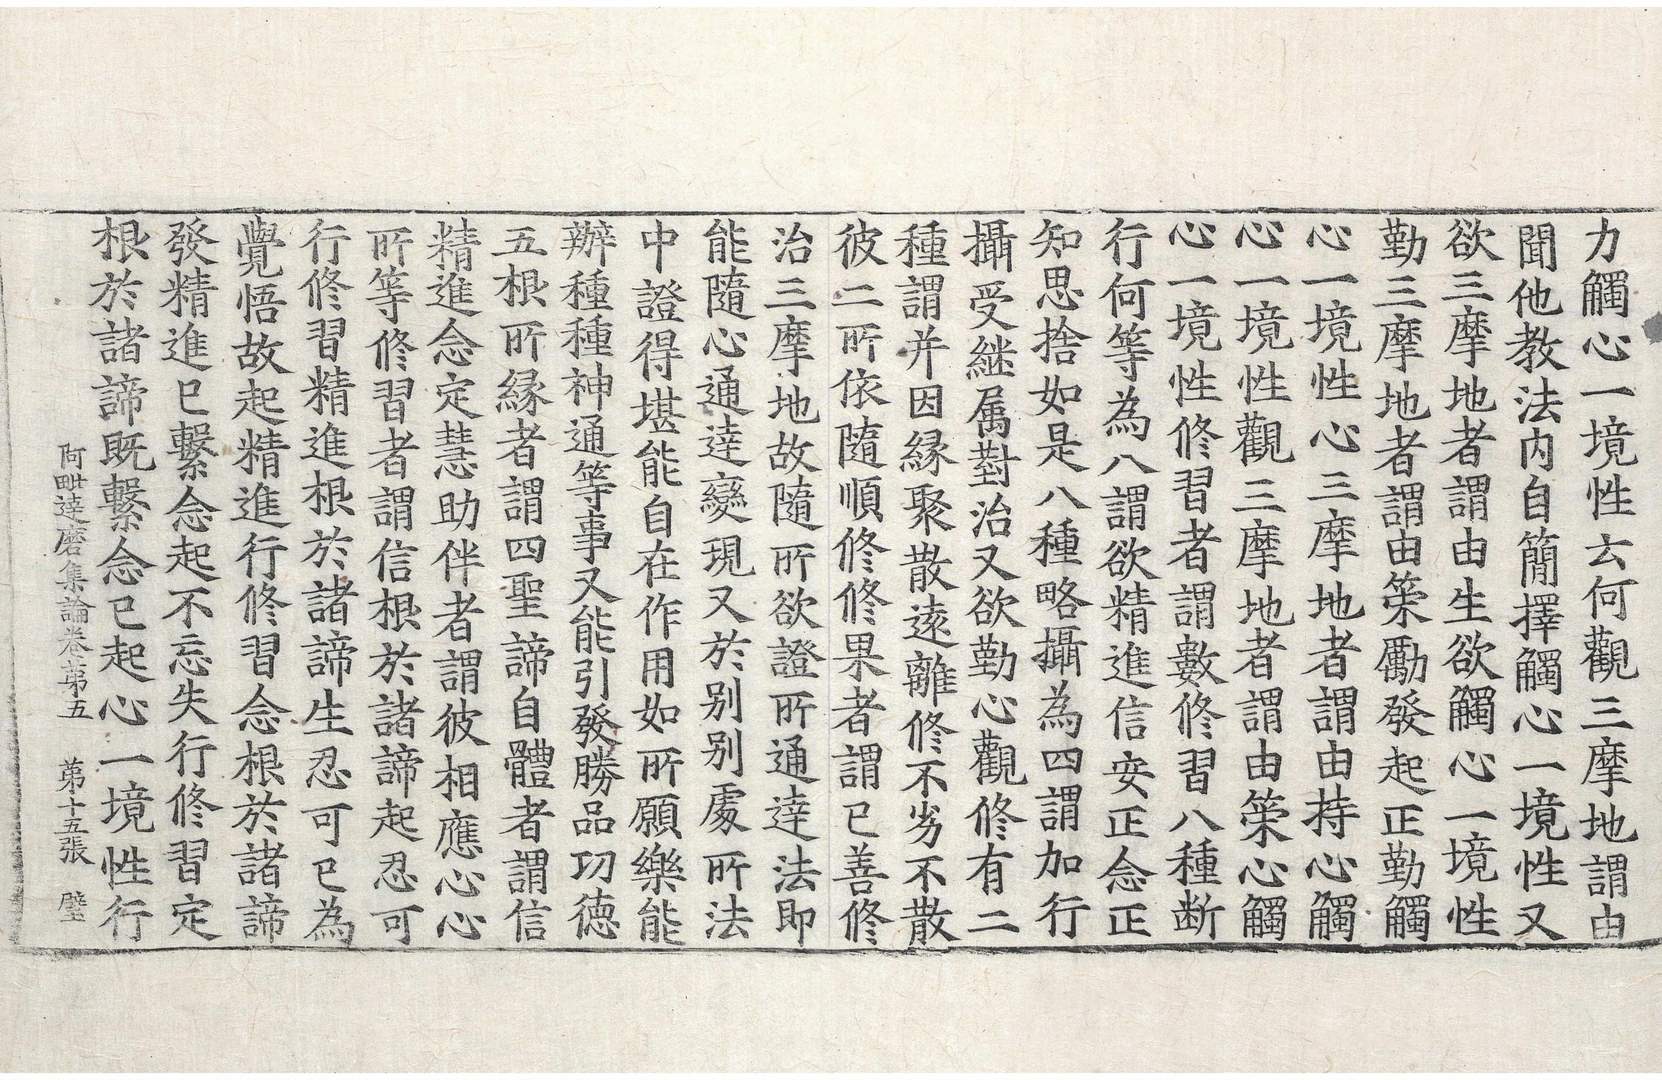 力觸心一境性云何觀三摩地謂由
聞他教法内自簡擇觸心一境性又
欲三摩地者謂由生欲觸心一境性
勤三摩地者謂由策勵發起正勤觸
心一境性心三摩地者謂由持心觸
心一境性觀三摩地者謂由策心觸
心一境性修習者謂數修習八種断
行何等為八謂欲精進信安正念正
知思捨如是八種略攝為四謂加行
攝受継属對治又欲勤心觀修有二
種謂并因縁聚散遠離修不劣不散
彼二所依隨順修修果者謂已善修
治三摩地故隨所欲證所通達法即
能隨心通達變現又於别别處所法
中證得堪能自在作用如所願樂能
辦種種神通等事又能引發勝品功徳
五根所縁者謂四聖諦自體者謂信
精進念定慧助伴者謂彼相應心心
所等修習者謂信根於諸諦起忍可
行修習精進根於諸諦生忍可已為
覺悟故起精進行修習念根於諸諦
發精進已繫念起不忘失行修習定
根於諸諦既繫念已起心一境性行
阿毗達磨集論卷第五 第十五張 璧